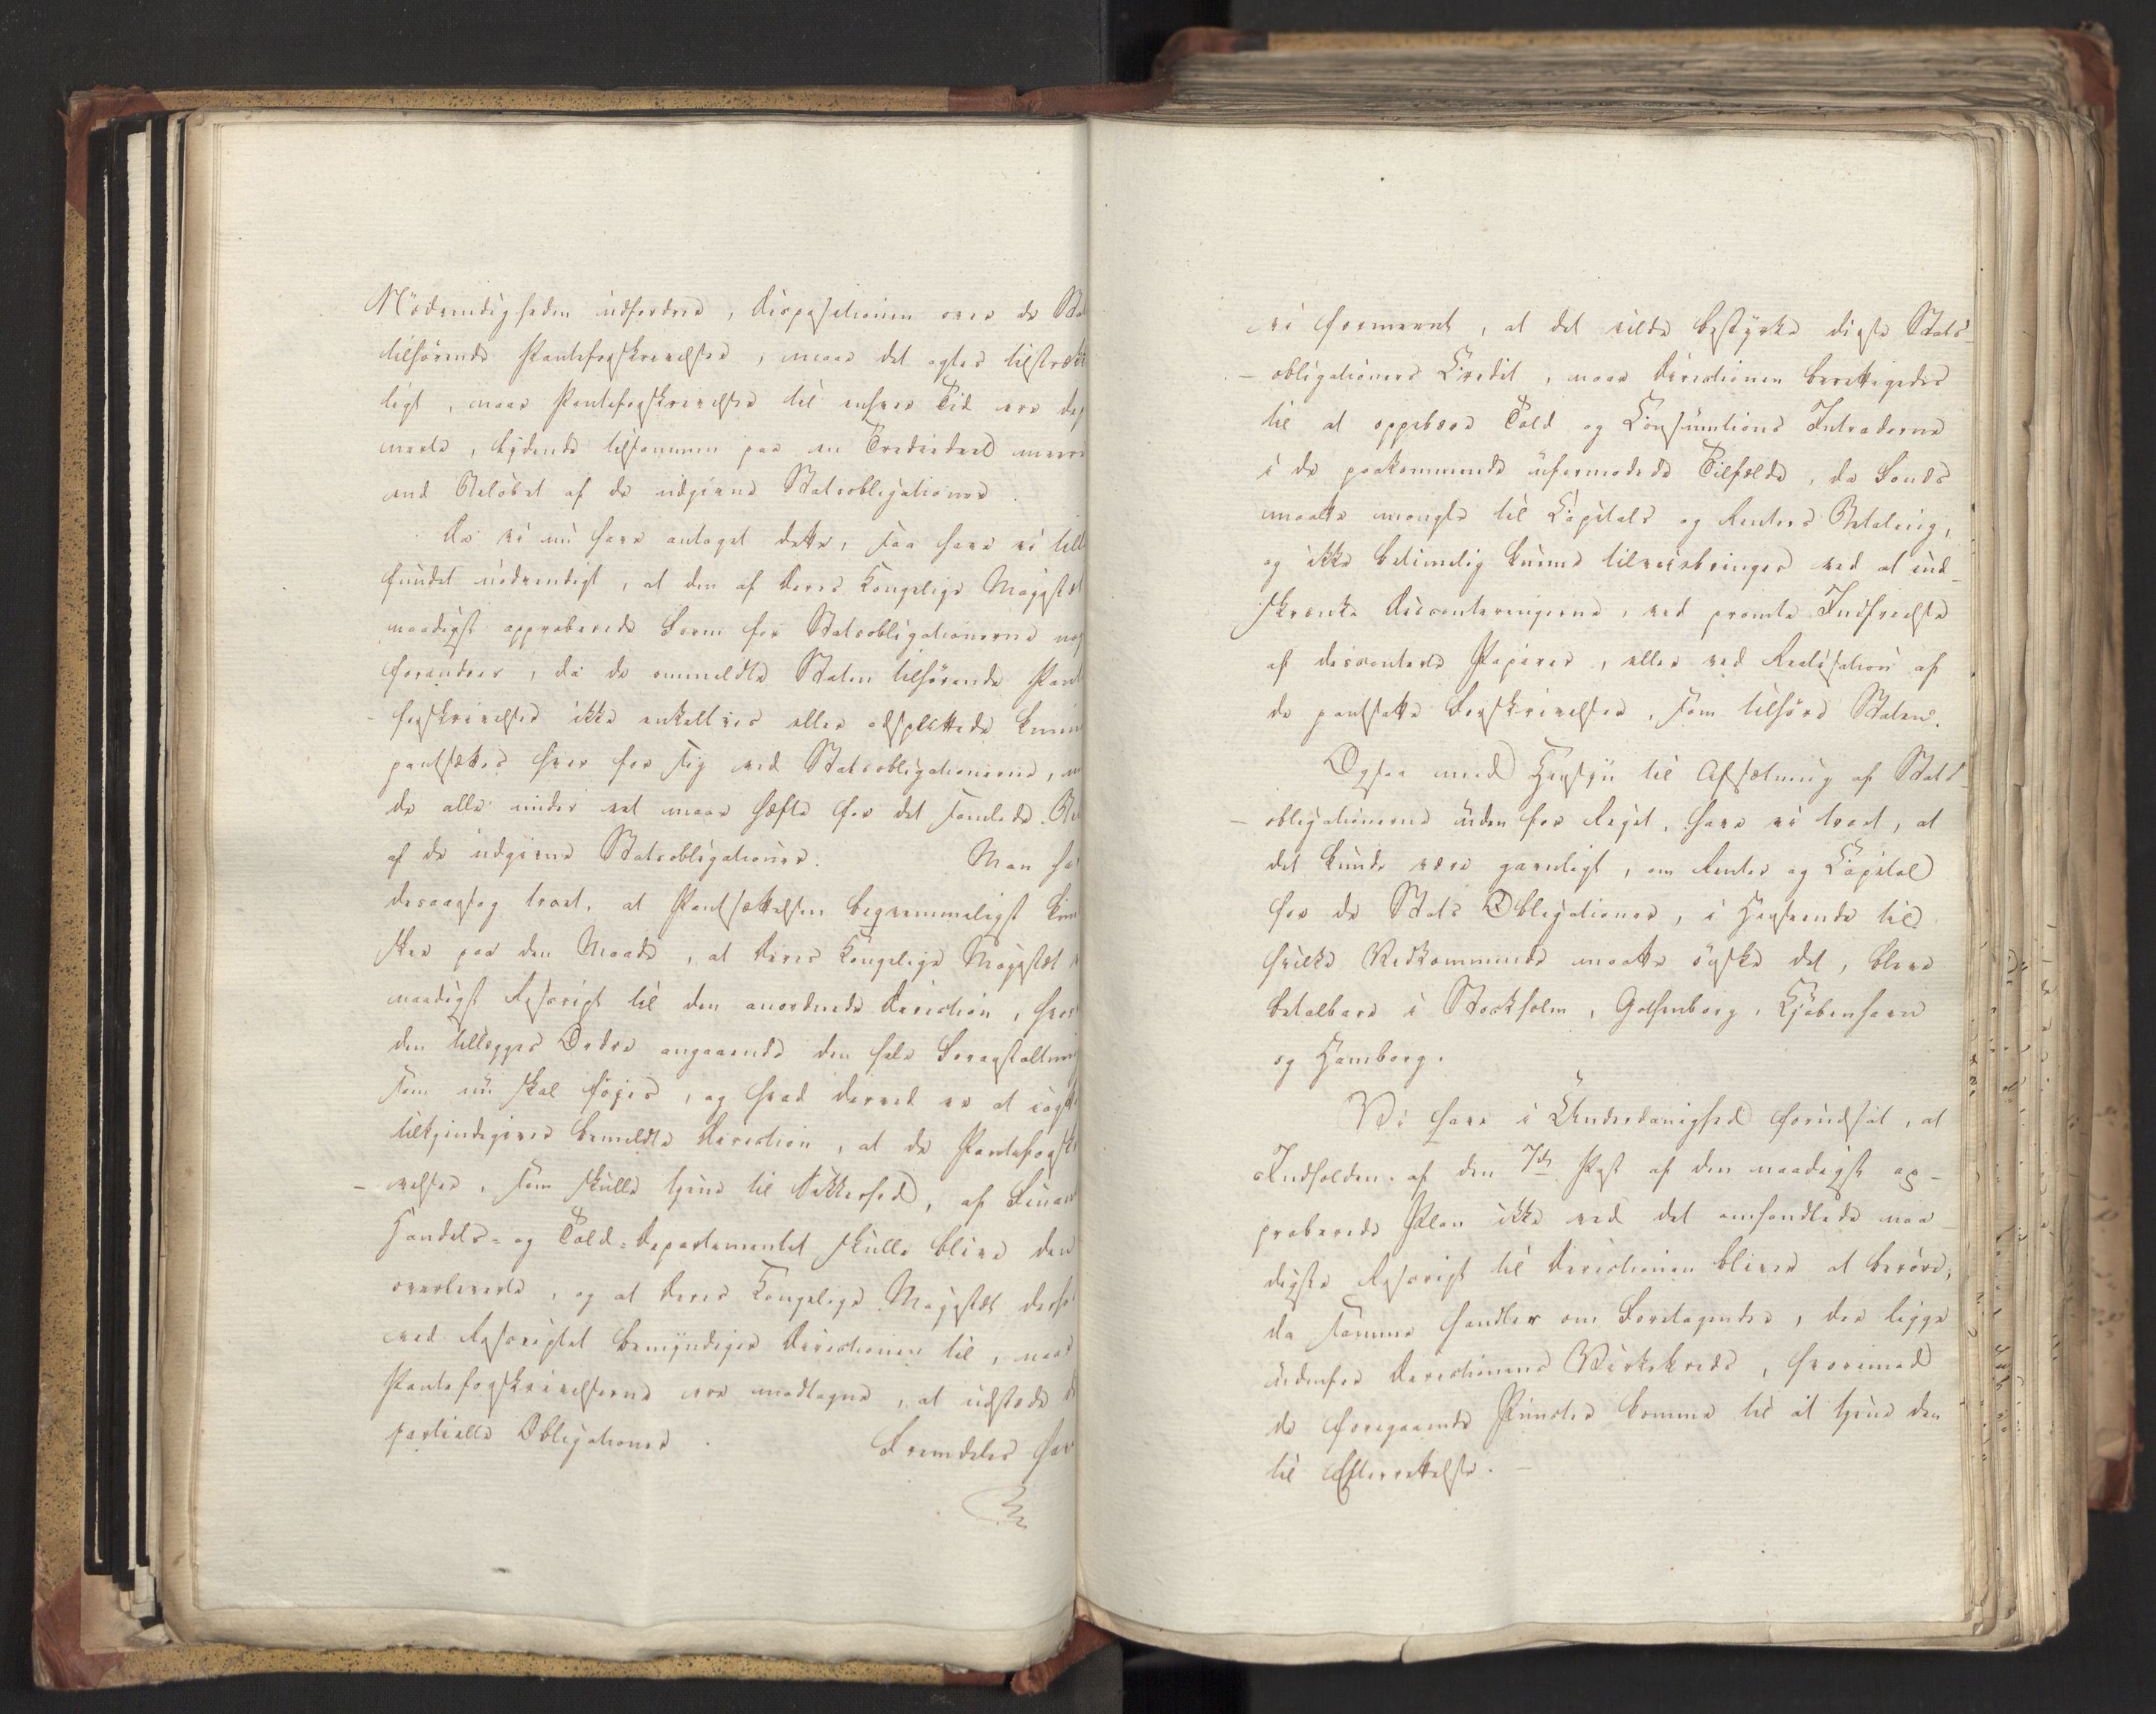 Nödvendigheden udfordrer, Dispositionen over de Sta
tilhörende Panteforskrivelser, maae det agtes tilstrække
ligt, naar Panteforskrivelser til enhver Tid ere de
nerte, lydende tilsammen paa en Trediedeel meere
end Belöbet af de udgivne Statsobligationer.
Da vi nu have antaget dette, saa have vi till
fundet nödvendigt, at den af Deres Kongelige Majestæt
naadigst approberede Form for Statsobligationerne no
forandres, da de ommeldte Staten tilhörende Pant
forskrivelser ikke enkeltvis eller adsplittede kunne
pantsættes hver for sig ved Statsobligationerne, m
de alle under eet maae hæfte for det samlede Be
af de udgivne Statsobligationer. Man ha
desaarsag troet, at Pantsættelsen beqvemmeligst kun
skee paa den Maade, at Deres Kongelige Majestæt
naadigst Rescript til den anordnede Direction, hvor
den tillægges Ordre angaaende den hele Foranstaltning
som nu skal föjes, og hvad derved er at iagt
tilkjendegiver bemeldte Direction, at de Panteforsk
velser, som skulle tjene til Sikkerhed, af Finan
Handels- og Told-Departementet skulle blive den
overleverte, og at Deres Kongelige Majestæt derho
ved Rescriptet bemyndiger Directionen til, naar
Panteforskrivelserne ere modtagne, at udstæde d
partielle Obligationer. Fremdeles hav
vi formeent, at det vilde bestyrke disse Stats-
obligationers Credit, naar Directionen berettigedes
til at oppebære Told og Consumtions Intraderne
i de paakommende uformodede Tilfælde, da Fonds
maatte mangle til Capitals og Renters Betaling,
og ikke betimelig kunne tilveiebringes ved at ind-
skrænke Disconteringerne, ved promte Indfrielse
af disconterte Papirer, eller ved Realisation af
de pantsatte Forskrivelser, som tilhöre Staten.
Ogsaa med Hensyn til Afsætning af Stats-
obligationerne uden for Riget, have vi troet, at
det kunde være gavnligt, om Renter og Capital
for de Stats Obligationer, i Henseende til
hvilke Vedkommende maatte önske det, bleve
betalbare i Stockholm, Gothenborg, Kjöbenhavn
og Hamborg.
Vi have i Underdanighed forudsat, at
Indholden af den 7de Post af den naadigst ap-
proberede Plan ikke ved det omhandlede naa-
digste Rescript til Directionen bliver at beröre,
da samme handler om Foretagender, der ligge
udenfor Directionens Virkekreds, hvorimod
de foregaaende Puncter komme til at tjene den
til Efterrettelse.